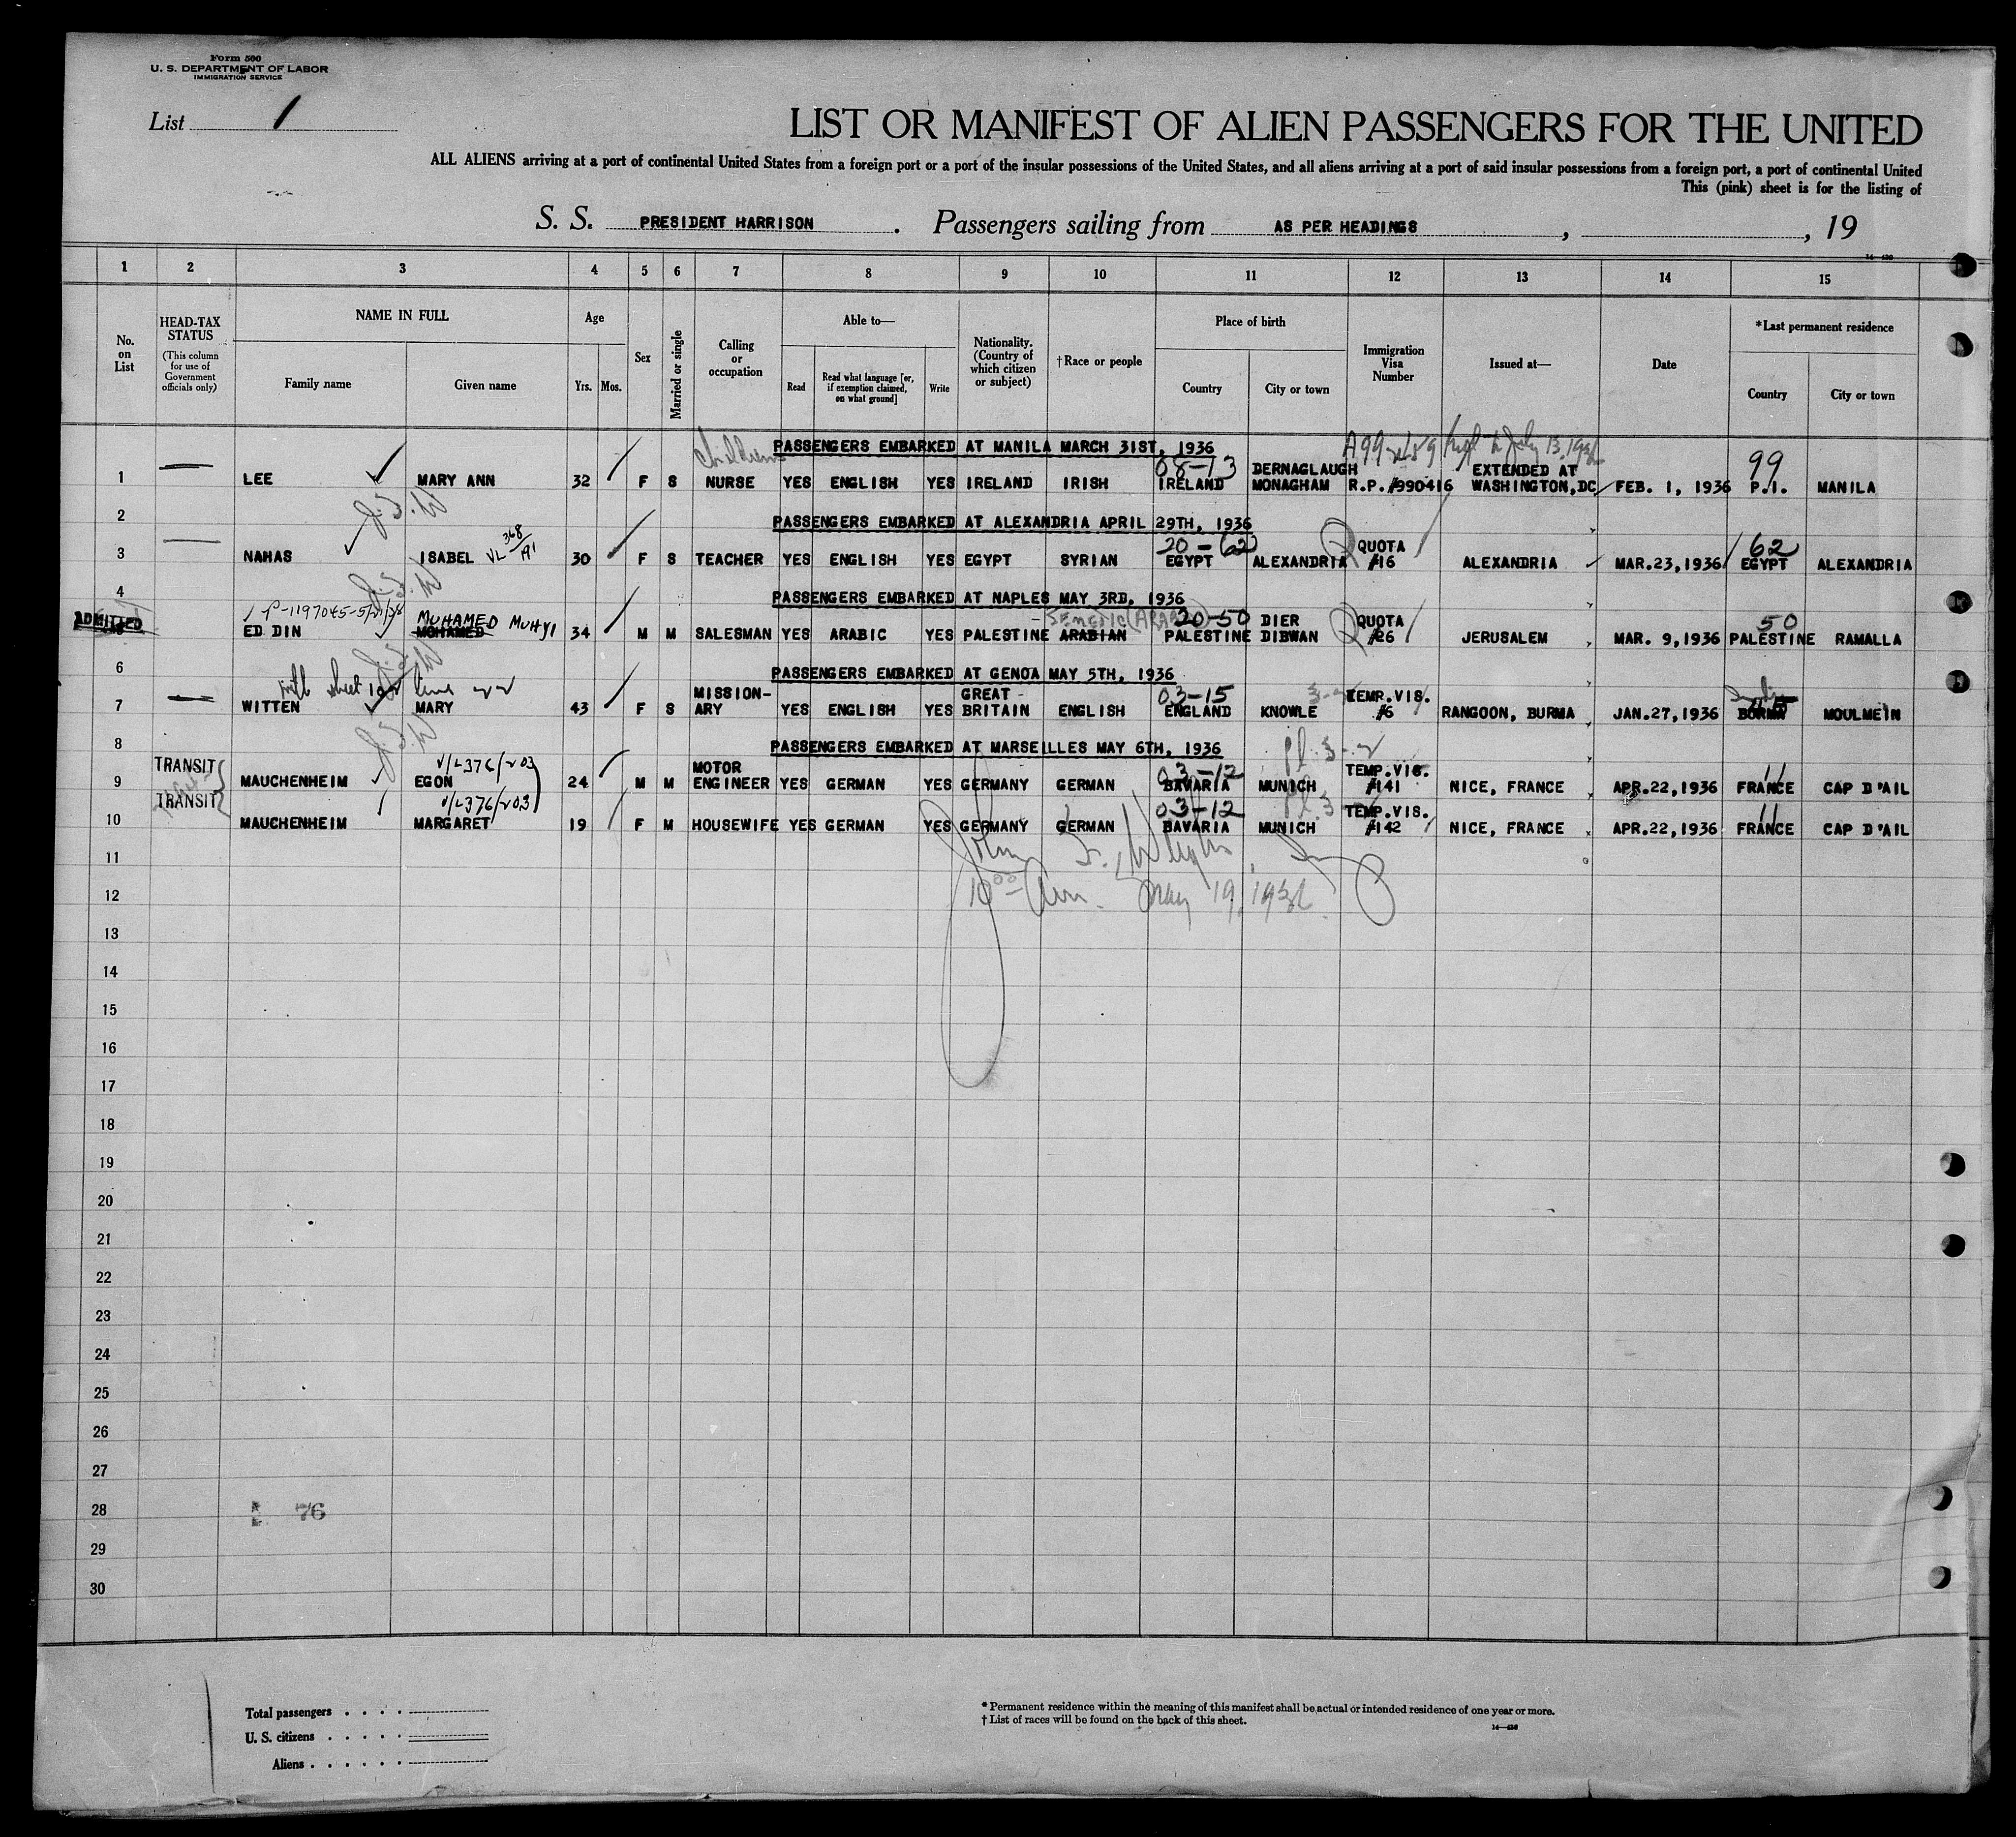 Form 500
U. S. DEPARTMENT OF LABOR
IMMIGRATION SERVICE
List 1
LIST OR MANIFEST OF ALIEN PASSENGERS FOR THE UNITED
ALL ALIENS arriving at a port of continental United States from a foreign port or a port of the insular possessions of the United States, and all aliens arriving at a port of said insular possessions from a foreign port, a port of continental United
This (pink) sheet is for the listing of
S. S. PRESIDENT HARRISON. Passengers sailing from AS PER HEADINGS, , 19
14—430
1 2 3 4 5 6 7 8 9 10 11 12 13 14 15
No. on List
HEAD-TAX STATUS (This column for use of Government officials only)
NAME IN FULL
Family name Given name
Age
Yrs. Mos.
Sex
Married or single
Calling or occupation
Able to—
Read Read what language [or, if exemption claimed, on what ground] Write
Nationality. (Country of which citizen or subject)
†Race or people
Place of birth
Country City or town
Immigration Visa Number
Issued at—
Date
*Last permanent residence
Country City or town
PASSENGERS EMBARKED AT MANILA MARCH 31ST, 1936
08-13 DERNAGLAUGH EXTENDED AT 99
1 LEE MARY ANN 32 F S NURSE YES ENGLISH YES IRELAND IRISH IRELAND MONAGHAM R.P.#990416 WASHINGTON,DC FEB. 1, 1936 P.I. MANILA
2 PASSENGERS EMBARKED AT ALEXANDRIA APRIL 29TH, 1936
VL 368/191 20-62 QUOTA 62
3 NAHAS ISABEL 30 F S TEACHER YES ENGLISH YES EGYPT SYRIAN EGYPT ALEXANDRIA #16 ALEXANDRIA MAR.23,1936 EGYPT ALEXANDRIA
4 PASSENGERS EMBARKED AT NAPLES MAY 3RD, 1936
ADMITTED MUHAMED MUHYI 20-50 DIER QUOTA 50
ED DIN MOHAMED 34 M M SALESMAN YES ARABIC YES PALESTINE ARABIAN PALESTINE DIBWAN #26 JERUSALEM MAR. 9,1936 PALESTINE RAMALLA
6 PASSENGERS EMBARKED AT GENOA MAY 5TH, 1936
MISSION- GREAT 03-15 TEMP.VIS.
7 WITTEN MARY 43 F S ARY YES ENGLISH YES BRITAIN ENGLISH ENGLAND KNOWLE #6 RANGOON, BURMA JAN.27,1936 BURMA MOULMEIN
8 PASSENGERS EMBARKED AT MARSEILLES MAY 6TH, 1936
TRANSIT V/L376/203 MOTOR 03-12 TEMP.VIS. 11
9 MAUCHENHEIM EGON 24 M M ENGINEER YES GERMAN YES GERMANY GERMAN BAVARIA MUNICH #141 NICE, FRANCE APR.22,1936 FRANCE CAP D'AIL
TRANSIT V/L376/203 03-12 TEMP.VIS. 11
10 MAUCHENHEIM MARGARET 19 F M HOUSEWIFE YES GERMAN YES GERMANY GERMAN BAVARIA MUNICH #142 NICE, FRANCE APR.22,1936 FRANCE CAP D'AIL
11
12 May 19, 1936
13
14
15
16
17
18
19
20
21
22
23
24
25
26
27
28 76
29
30
Total passengers . . . .
U. S. citizens . . . . .
Aliens . . . . . .
* Permanent residence within the meaning of this manifest shall be actual or intended residence of one year or more.
† List of races will be found on the back of this sheet.
14—430